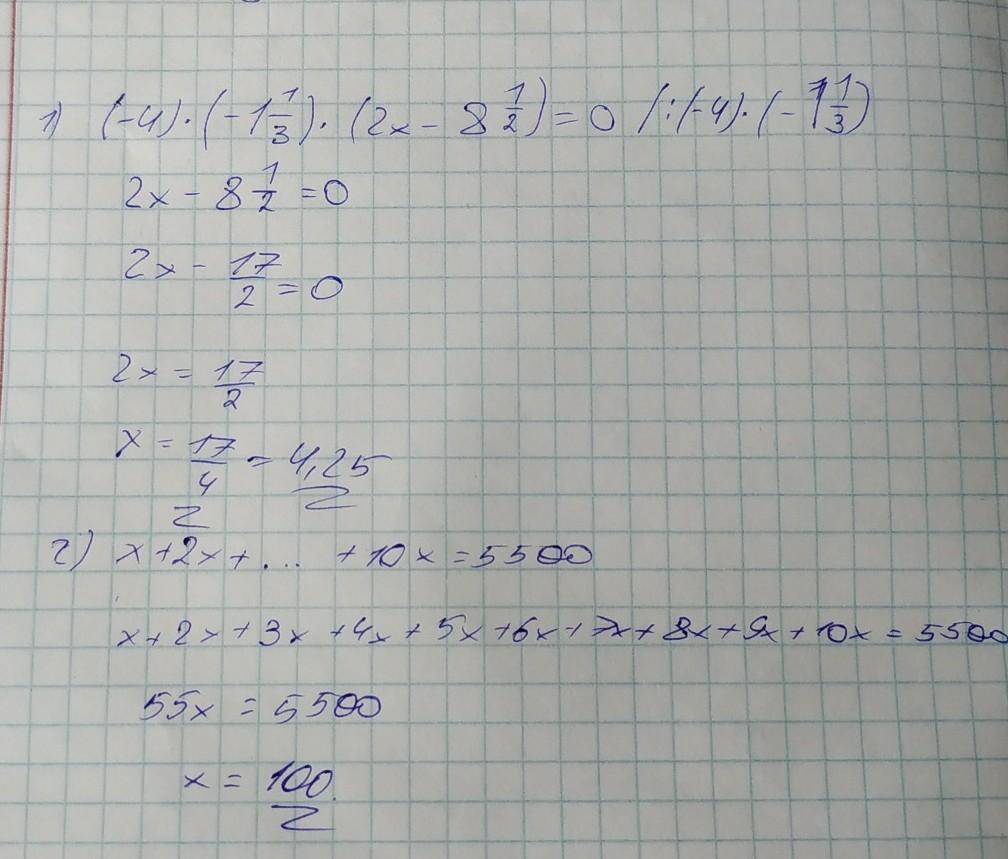 1) (-4)·(-1 1/3)·(2x - 8 1/2) = 0 /:(-4)·(-1 1/3)
2x - 8 1/2 = 0
2x - 17/2 = 0
2x = 17/2
x = 17/4 = 4,25
2) x+2x+... +10x = 5500
x+2x+3x+4x+5x+6x+7x+8x+9x+10x = 5500
55x = 5500
x = 100